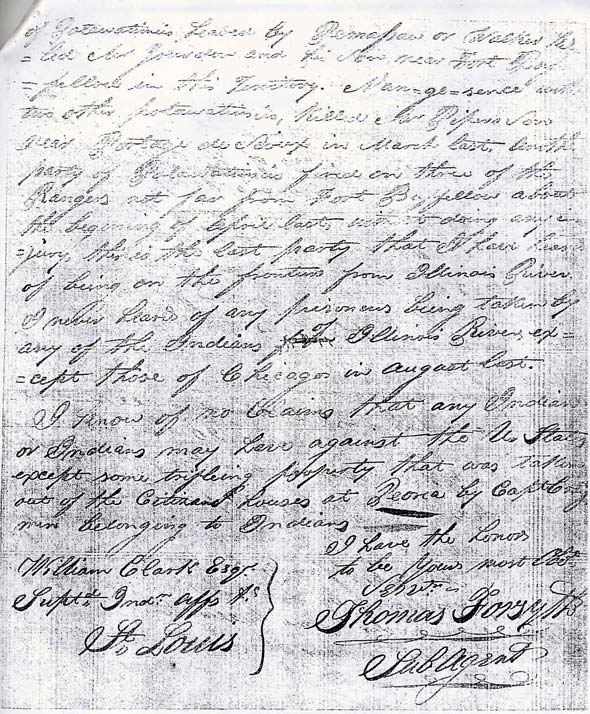 of Potawatimies headed by Pemassaw or Walker kil
=led Mr Jourden and his Son near Fort
=fellow in this Territory. Nan=ge=sence with
two other potawatimies, killed Mr Pipers Son
near Portage de Sioux in March last, another
party of Potawatimies fired on three of the
Rangers not far from Fort By fellow about
the begening of April last, without doing any in
=jury, this is the last party that I have heard
of being on the frontiers from Illinois River.
I never heard of any prisoners being taken by
any of the Indians of Illinois River, ex=
=cept those of Chicagoe in august last.
I know of no Claims that any Indian
or Indians may have against the U. States
except some trifleing property that was taken
out of the Citizens houses at Peoria by Capt Craig
min belonging to Indians
I have the honor
to be Yours most Obt
Servt
Thomas Forsyth
Sub Agent
William Clark Esqr.
Supt. Indn affs
St Louis